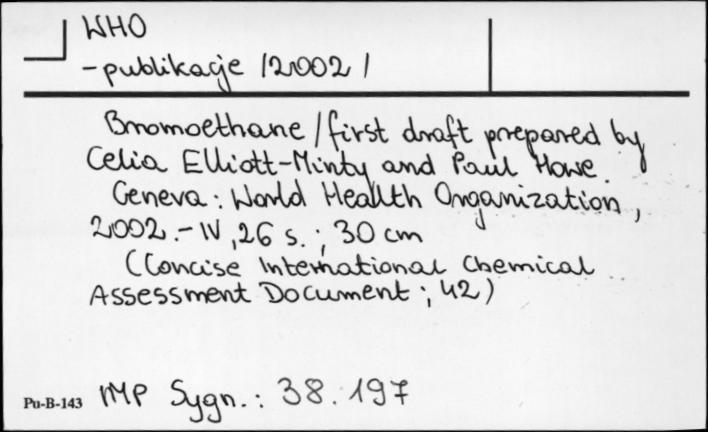 WHO
- publikacje /2002/
Bromoethane / first draft prepared by
Celia Elliott-Minty and Paul Howe.
Geneva : World Health Organization,
2002. - IV, 26 s. ; 30 cm
(Concise International Chemical
Assessment Document ; 42)
Pu-B-143 IMP Sygn.: 38.197